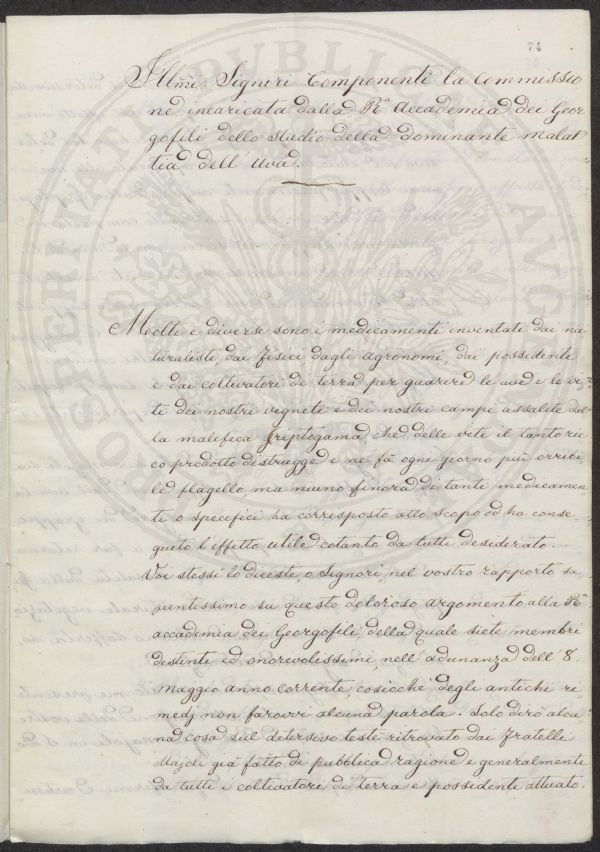 74
Ill.mi Signori Componenti la Commissio
ne incaricata dalla R.a Accademia dei Geor
gofili dello studio della dominante malat
tia dell'Uva.
Molti e diversi sono i medicamenti inventati dai na
turalisti, dai fisici dagli agronomi dai possidenti
e dai coltivatori di terra per guarire le uve e le vi
ti dei nostri vigneti e dei nostri campi assalite dal
la malefica griptogama che delle viti il tanto ric
co prodotto distrugge e ne fà ogni giorno più orribi
le flagello, ma niuno finora di tanti medicamen
ti o specifici ha corrisposto allo scopo od ha conse
guito l'effetto utile cotanto da tutti desiderato.
Voi stessi lo diceste, o Signori, nel vostro rapporto sa
pientissimo su questo doloroso argomento alla R.a
accademia dei Georgofili, della quale siete membri
distinti ed onorevolissimi, nell'adunanza dell'8.
Maggio anno corrente, cosicché degli antichi ri
medj non farovvi alcuna parola. Solo dirò alcu
na cosa sul detersivo testè ritrovato dai fratelli
Majoli già fatto di pubblica ragione e generalmente
da tutti i coltivatori di terra e possidenti attuato.
PROSPERITATI PUBLICAE AUG